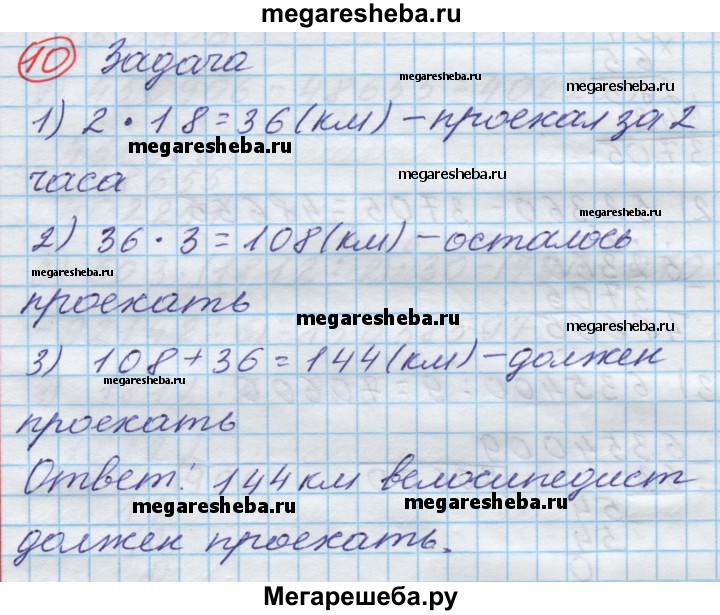 megaresheba.ru
10 Задача
megaresheba.ru
megaresheba.ru
1) 2 • 18 = 36 (км) – проехал за 2
megaresheba.ru
часа
megaresheba.ru
2) 36 • 3 = 108 (км) – осталось
megaresheba.ru
проехать
megaresheba.ru
megaresheba.ru
3) 108 + 36 = 144 (км) – должен
megaresheba.ru
проехать
megaresheba.ru
Ответ: 144 км велосипедист
megaresheba.ru
megaresheba.ru
должен проехать.
Мегарешеба.ру